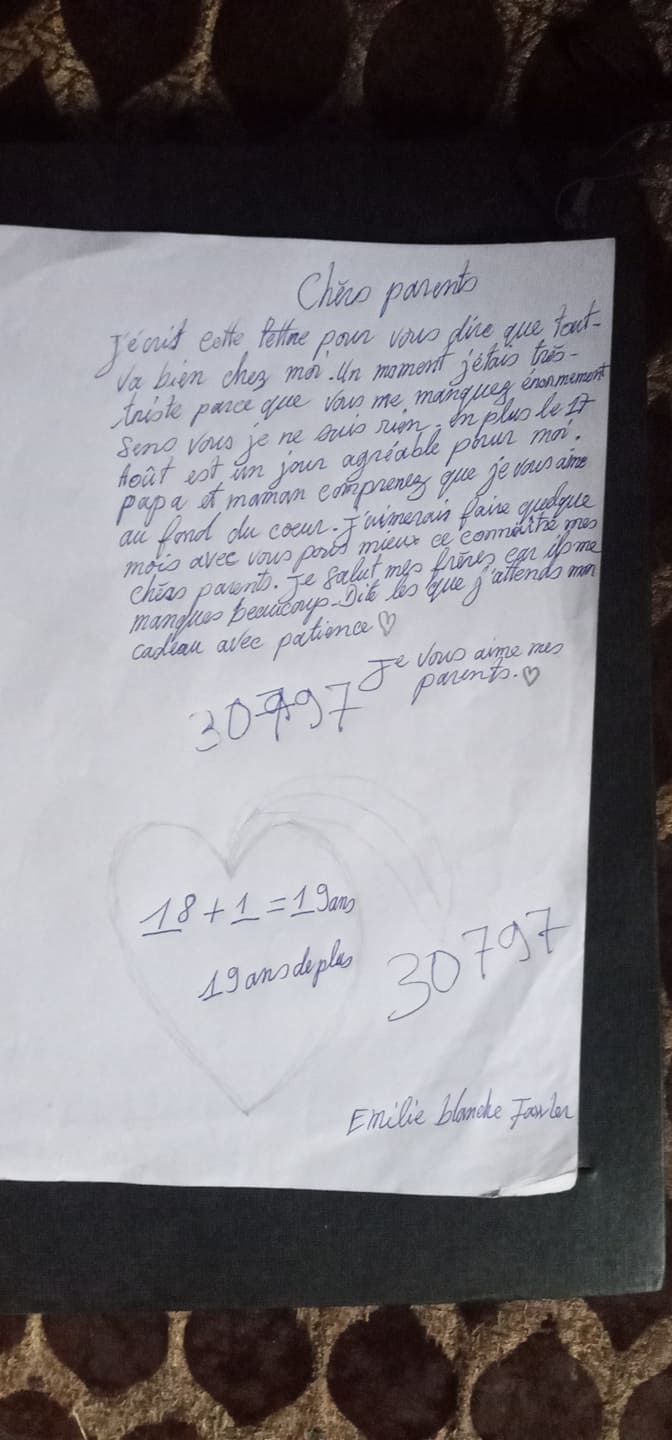 Chèrs parents
J'écrit cette lettre pour vous dire que tout-
va bien chez moi. Un moment j'étais très-
triste parce que vous me manquez énormement
Sens vous je ne suis rien. En plus le 17
Août est un jour agréable pour moi.
papa et maman comprenez que je vous aime
au fond du coeur. J'aimerais faire quelque
mois avec vous pour mieux ce connaître mes
chèrs parents. Je Salut mes frères car ils me
manques beaucoup. Dite les que j'attends mon
cadeau avec patience ♡
Je vous aime mes
parents. ♡
30797
18+1=19ans
19ans de plus
30797
Emilie blanche